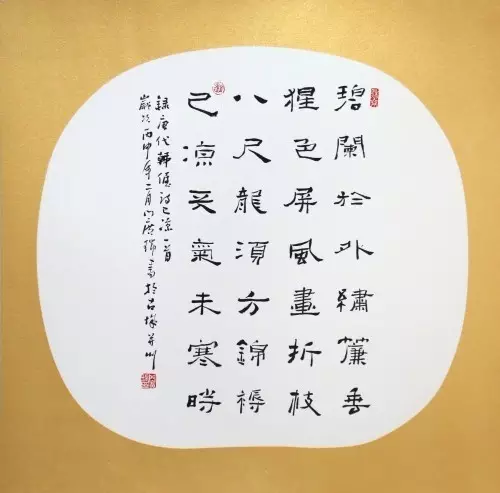 碧闌於外繡簾垂
猩色屏風畫折枝
八尺龍須方錦褥
已涼天氣未寒時
錄唐代韓偓詩已涼一首
歲次丙申年二月書於古城并州